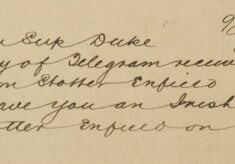 9
Sup Duke
y of Telegram receiv
m Stotter Enfield
ave you an Irish
otter Enfield on